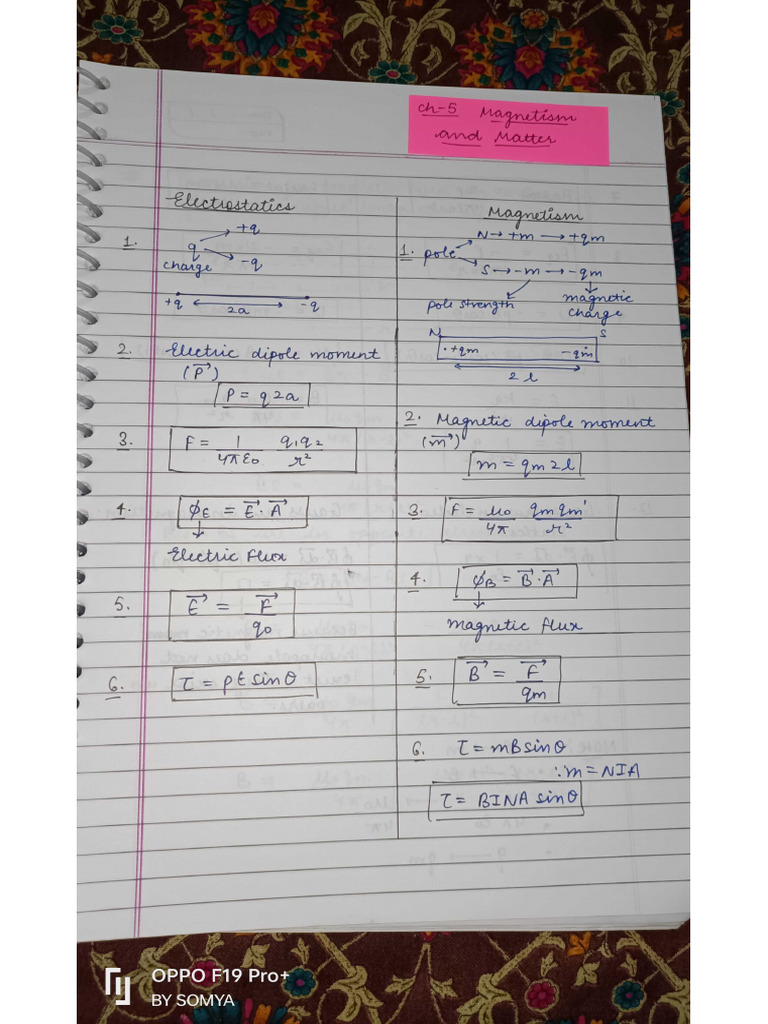 ch-5 Magnetism
and Matter
Electrostatics
1. q → +q
→ -q
charge
+q 2a -q
2. Electric dipole moment
(P⃗)
P = q2a
3. F = 1/4πε0 q1q2/r²
4. φE = E⃗.A⃗
↓
Electric flux
5. E⃗ = F⃗/q0
6. τ = pEsinθ
Magnetism
1. pole → N → +m → +qm
→ S → -m → -qm
pole strength
magnetic
charge
N S
+qm -qm
2l
2. Magnetic dipole moment
(m⃗)
m = qm2l
3. F = μ0/4π qmqm'/r²
4. φB = B⃗.A⃗
↓
magnetic flux
5. B⃗ = F⃗/qm
6. τ = mBsinθ
∵m = NIA
τ = BINA sinθ
OPPO F19 Pro+
BY SOMYA